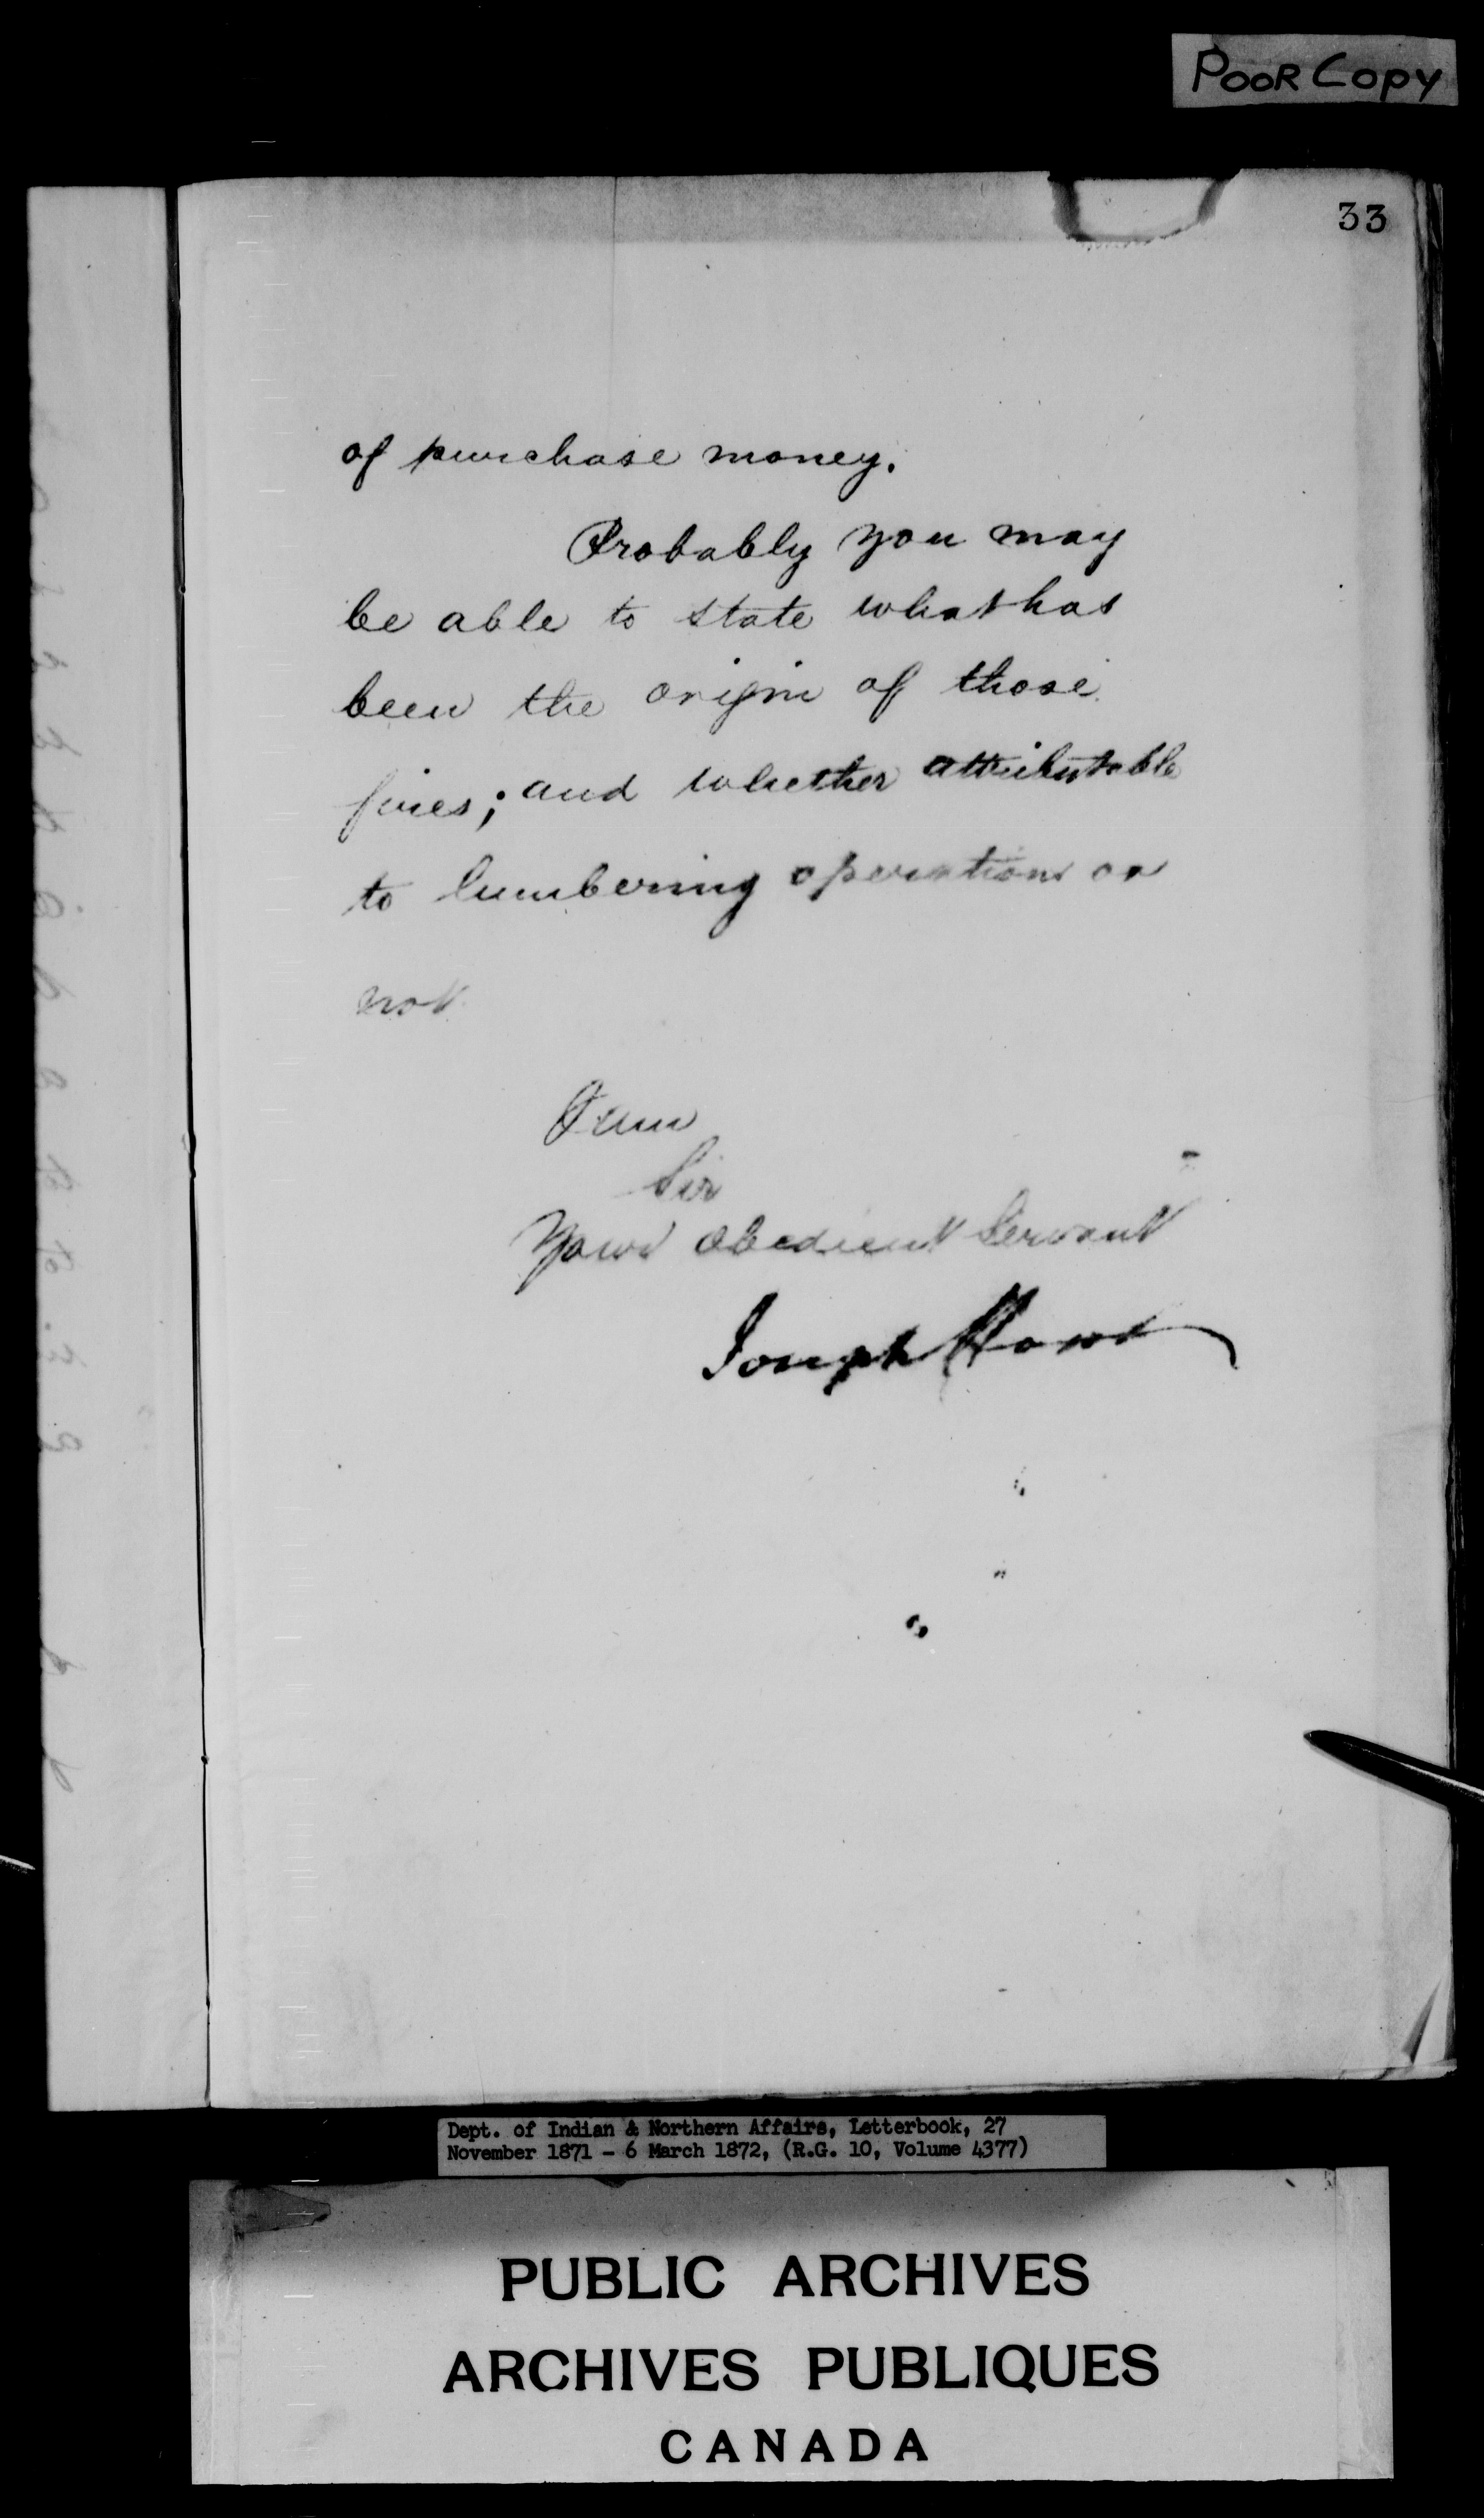 POOR COPY
33
of purchase money.
Probably you may
be able to state what has
been the origin of those
fires; and whether attributable
to lumbering operations or
not
I am
Sir
Your obedient Servant
Joseph Howe
Dept. of Indian & Northern Affairs, Letterbook, 27
November 1871 - 6 March 1872, (R.G. 10, Volume 4377)
PUBLIC ARCHIVES
ARCHIVES PUBLIQUES
CANADA